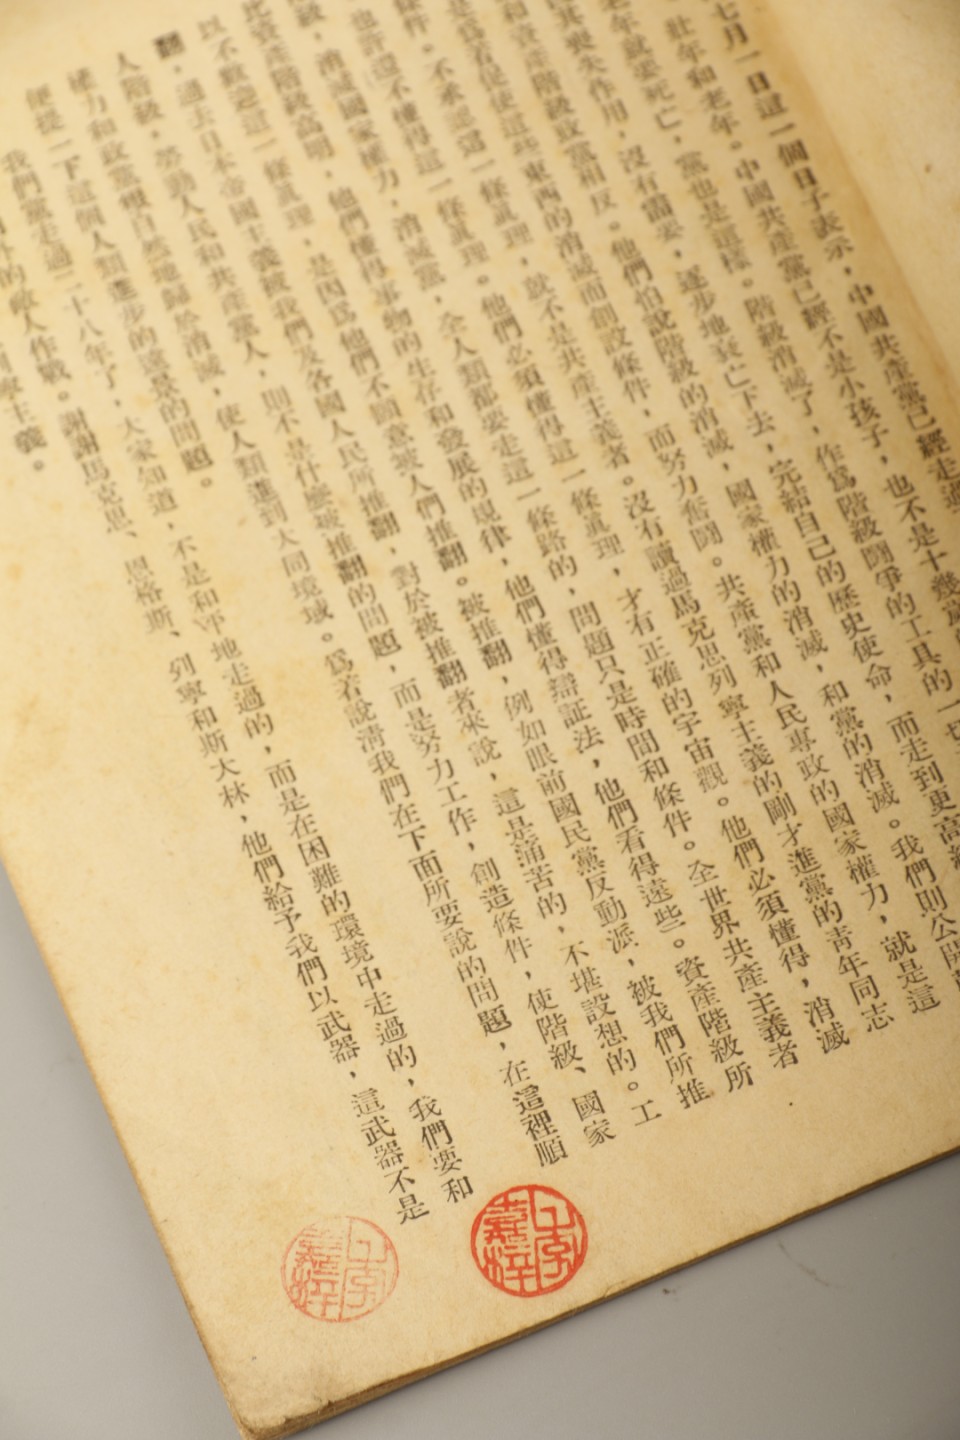 七月一日這一個日子表示，中國共產黨已經走過
壯年和老年。中國共產黨已經不是小孩子，也不是十幾歲的
老年就要死亡，黨也是這樣。階級消滅了，作爲階級鬪爭的工具的一切
其喪失作用，沒有需要，逐步地衰亡下去，完結自己的歷史使命，而走到更高級
和資產階級政黨相反。他們怕說階級的消滅，國家權力的消滅，和黨的消滅。我們則公開
是爲着促使這些東西的消滅而創設條件，而努力奮鬪。共產黨和人民專政的國家權力，就是這
條件。不承認這一條眞理，就不是共產主義者。沒有讀過馬克思列寧主義的剛才進黨的靑年同志
也許還不懂得這一條眞理。他們必須懂得這一條眞理，才有正確的宇宙觀。他們必須懂得，消滅
級，消滅國家權力，消滅黨，全人類都要走這一條路的，問題只是時間和條件。全世界共產主義者
比資產階級高明，他們懂得事物的生存和發展的規律，他們懂得辯証法，他們看得遠些。資產階級所
以不歡迎這一條眞理，是因爲他們不願意被人們推翻。被推翻，例如眼前國民黨反動派，被我們所推
翻，過去日本帝國主義被我們及各國人民所推翻，對於被推翻者來說，這是痛苦的，不堪設想的。工
人階級，勞動人民和共產黨人，則不是什麼被推翻的問題，而是努力工作，創造條件，使階級、國家
權力和政黨很自然地歸於消滅，使人類進到大同境域。爲着說淸我們在下面所要說的問題，在這裡順
便提一下這個人類進步的遠景的問題。
我們黨走過二十八年了，大家知道，不是和平地走過的，而是在困難的環境中走過的，我們要和
外的敵人作戰。謝謝馬克思、恩格斯、列寧和斯大林，他們給予我們以武器，這武器不是
寧主義。